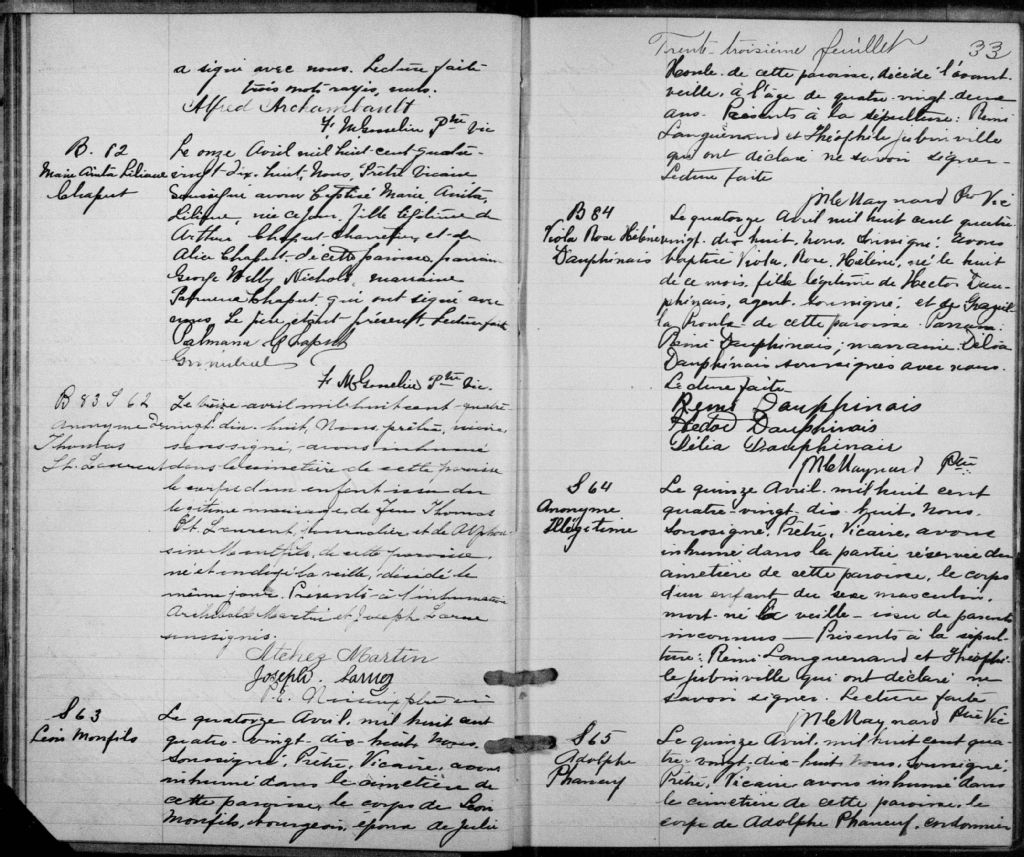 a signé avec nous. Lecture faite
trois mots rayés, nuls.
Alfred Archambault
Ptre Vic
B. 82
Marie Anita Liliane
Chaput
Le onze Avril mil huit cent quatre-
vingt dix-huit, Nous, Prêtre Vicaire
Soussigné avons baptisé Marie, Anita,
Liliane, née ce jour, fille légitime de
Arthur Chaput et de
Alice Chaput de cette paroisse, parrain
George Willy Nichols, marraine
Palmina Chaput qui ont signé avec
nous. Le père étant présent. Lecture faite
Palmina Chaput
Ptre Vic.
B 83 S 62
Anonyme de
Thomas
St. Laurent
Le treize avril mil huit cent quatre-
vingt dix-huit, Nous, prêtre, vicaire,
soussigné, avons inhumé
dans le cimetière de cette paroisse
le corps d'un enfant issu du
légitime mariage de feu Thomas
St. Laurent, journalier et de Alphon-
sine Montfils, de cette paroisse,
né et ondoyé la veille, décédé le
même jour. Présents à l'inhumation
Archibald Martin et Joseph Larue
soussignés.
Martin
Joseph Larue
S 63
Léon Monfils
Le quatorze Avril, mil huit cent
quatre-vingt-dix-huit, Nous
Soussigné, Prêtre, Vicaire, avons
inhumé dans le cimetière de
cette paroisse, le corps de Léon
Monfils, bourgeois, époux de Julie
Trente-troisième feuillet 33
Houle de cette paroisse, décédé l'avant-
veille, à l'âge de quatre-vingt-deux
ans. Présents à la sépulture: Rémi
Languerand et Théophile Jubinville
qui ont déclaré ne savoir signer-
Lecture faite
Maynard Ptre Vic
B 84
Viola Rose Hélène
Dauphinais
Le quatorze Avril mil huit cent quatre
vingt-dix huit, nous, soussigné, avons
baptisé Viola, Rose, Hélène, née le huit
de ce mois, fille légitime de Hector Dau-
phinais, agent, soussigné, et de Graziel-
la Proulx de cette paroisse. Parrain:
Rémi Dauphinais; marraine: Délia
Dauphinais soussignés avec nous.
Lecture faite
Remi Dauphinais
Hector Dauphinais
Délia Dauphinais
Maynard Ptre
S 64
Anonyme
Illégitime
Le quinze Avril, mil huit cent
quatre-vingt-dix-huit, Nous,
soussigné, Prêtre, Vicaire, avons
inhumé dans la partie réservée du
cimetière de cette paroisse, le corps
d'un enfant du sexe masculin,
mort-né la veille - issu de parents
inconnus — Présents à la sépul-
ture: Rémi Languerand et Théophi-
le Jubinville qui ont déclaré ne
savoir signer. Lecture faite
Maynard Ptre Vic
S 65
Adolphe
Phaneuf
Le quinze Avril, mil huit cent qua-
tre-vingt-dix-huit, Nous, Soussigné,
Prêtre, Vicaire avons inhumé dans
le cimetière de cette paroisse, le
corps de Adolphe Phaneuf, cordonnier